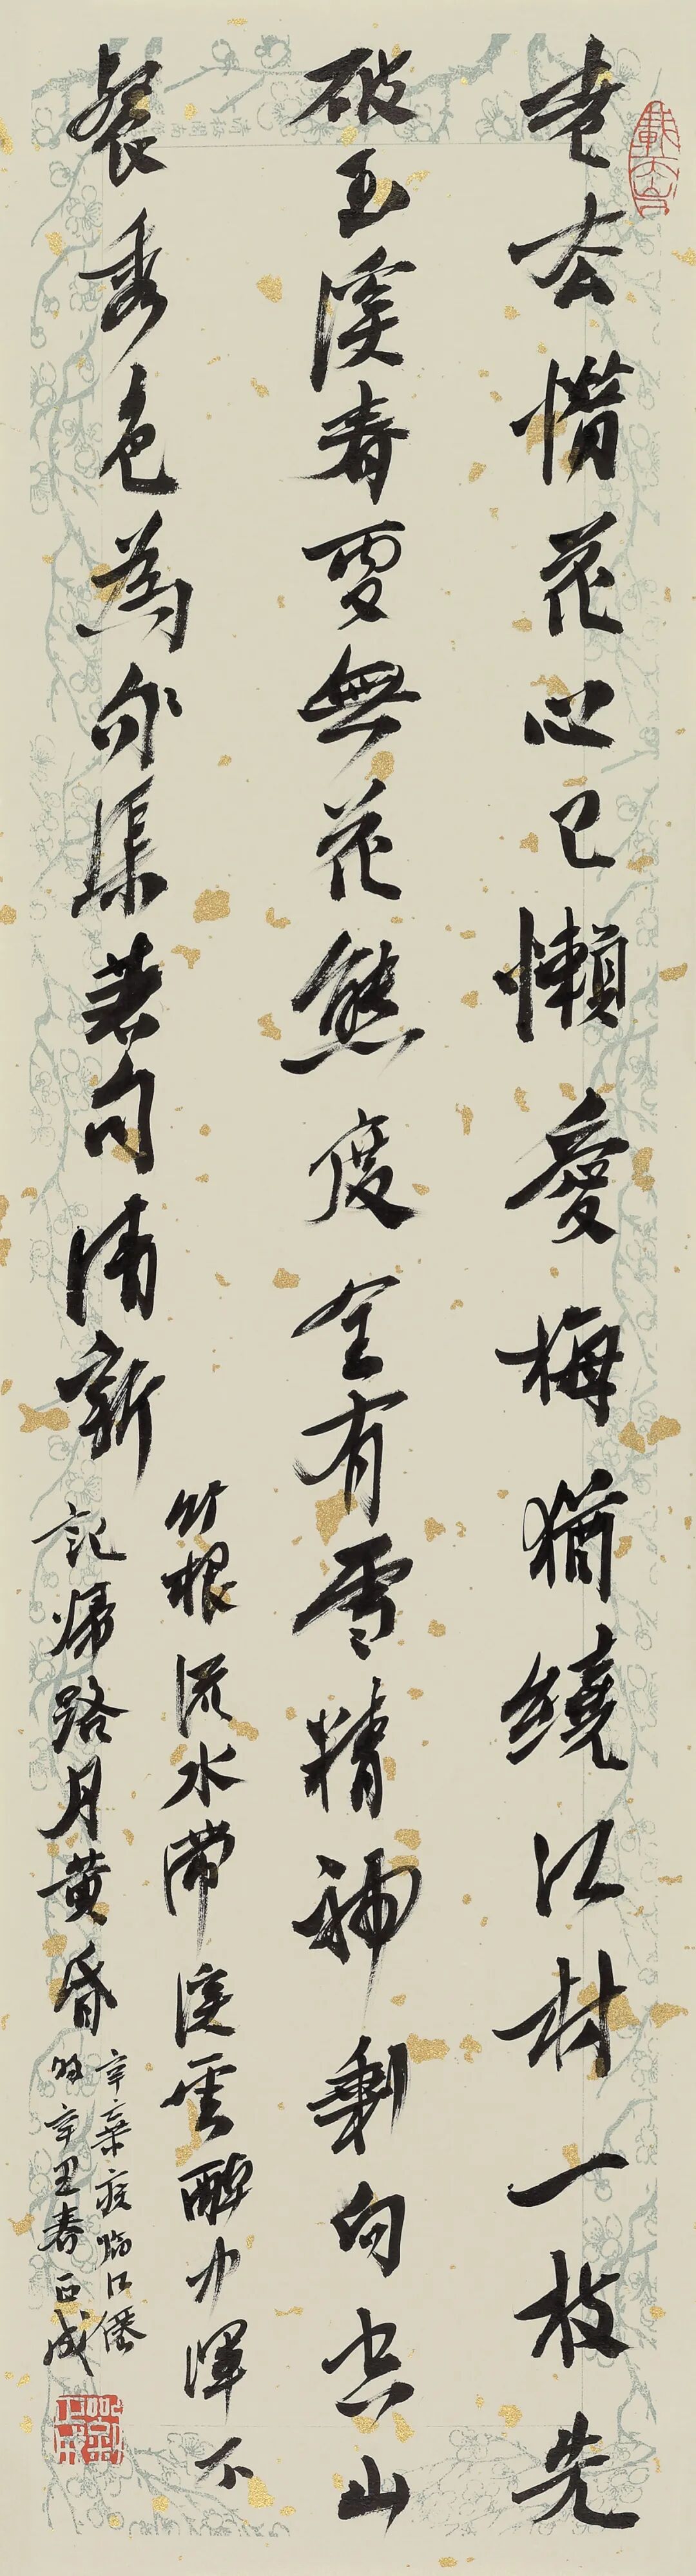 老去惜花心已懶愛梅猶繞江村一枝先
破玉溪春更無花態度全有雪精神剩向空山
餐秀色為渠著句清新
竹根流水帶溪雲醉中渾不
記歸路月黄昏
辛棄疾臨江仙
時辛丑春正成